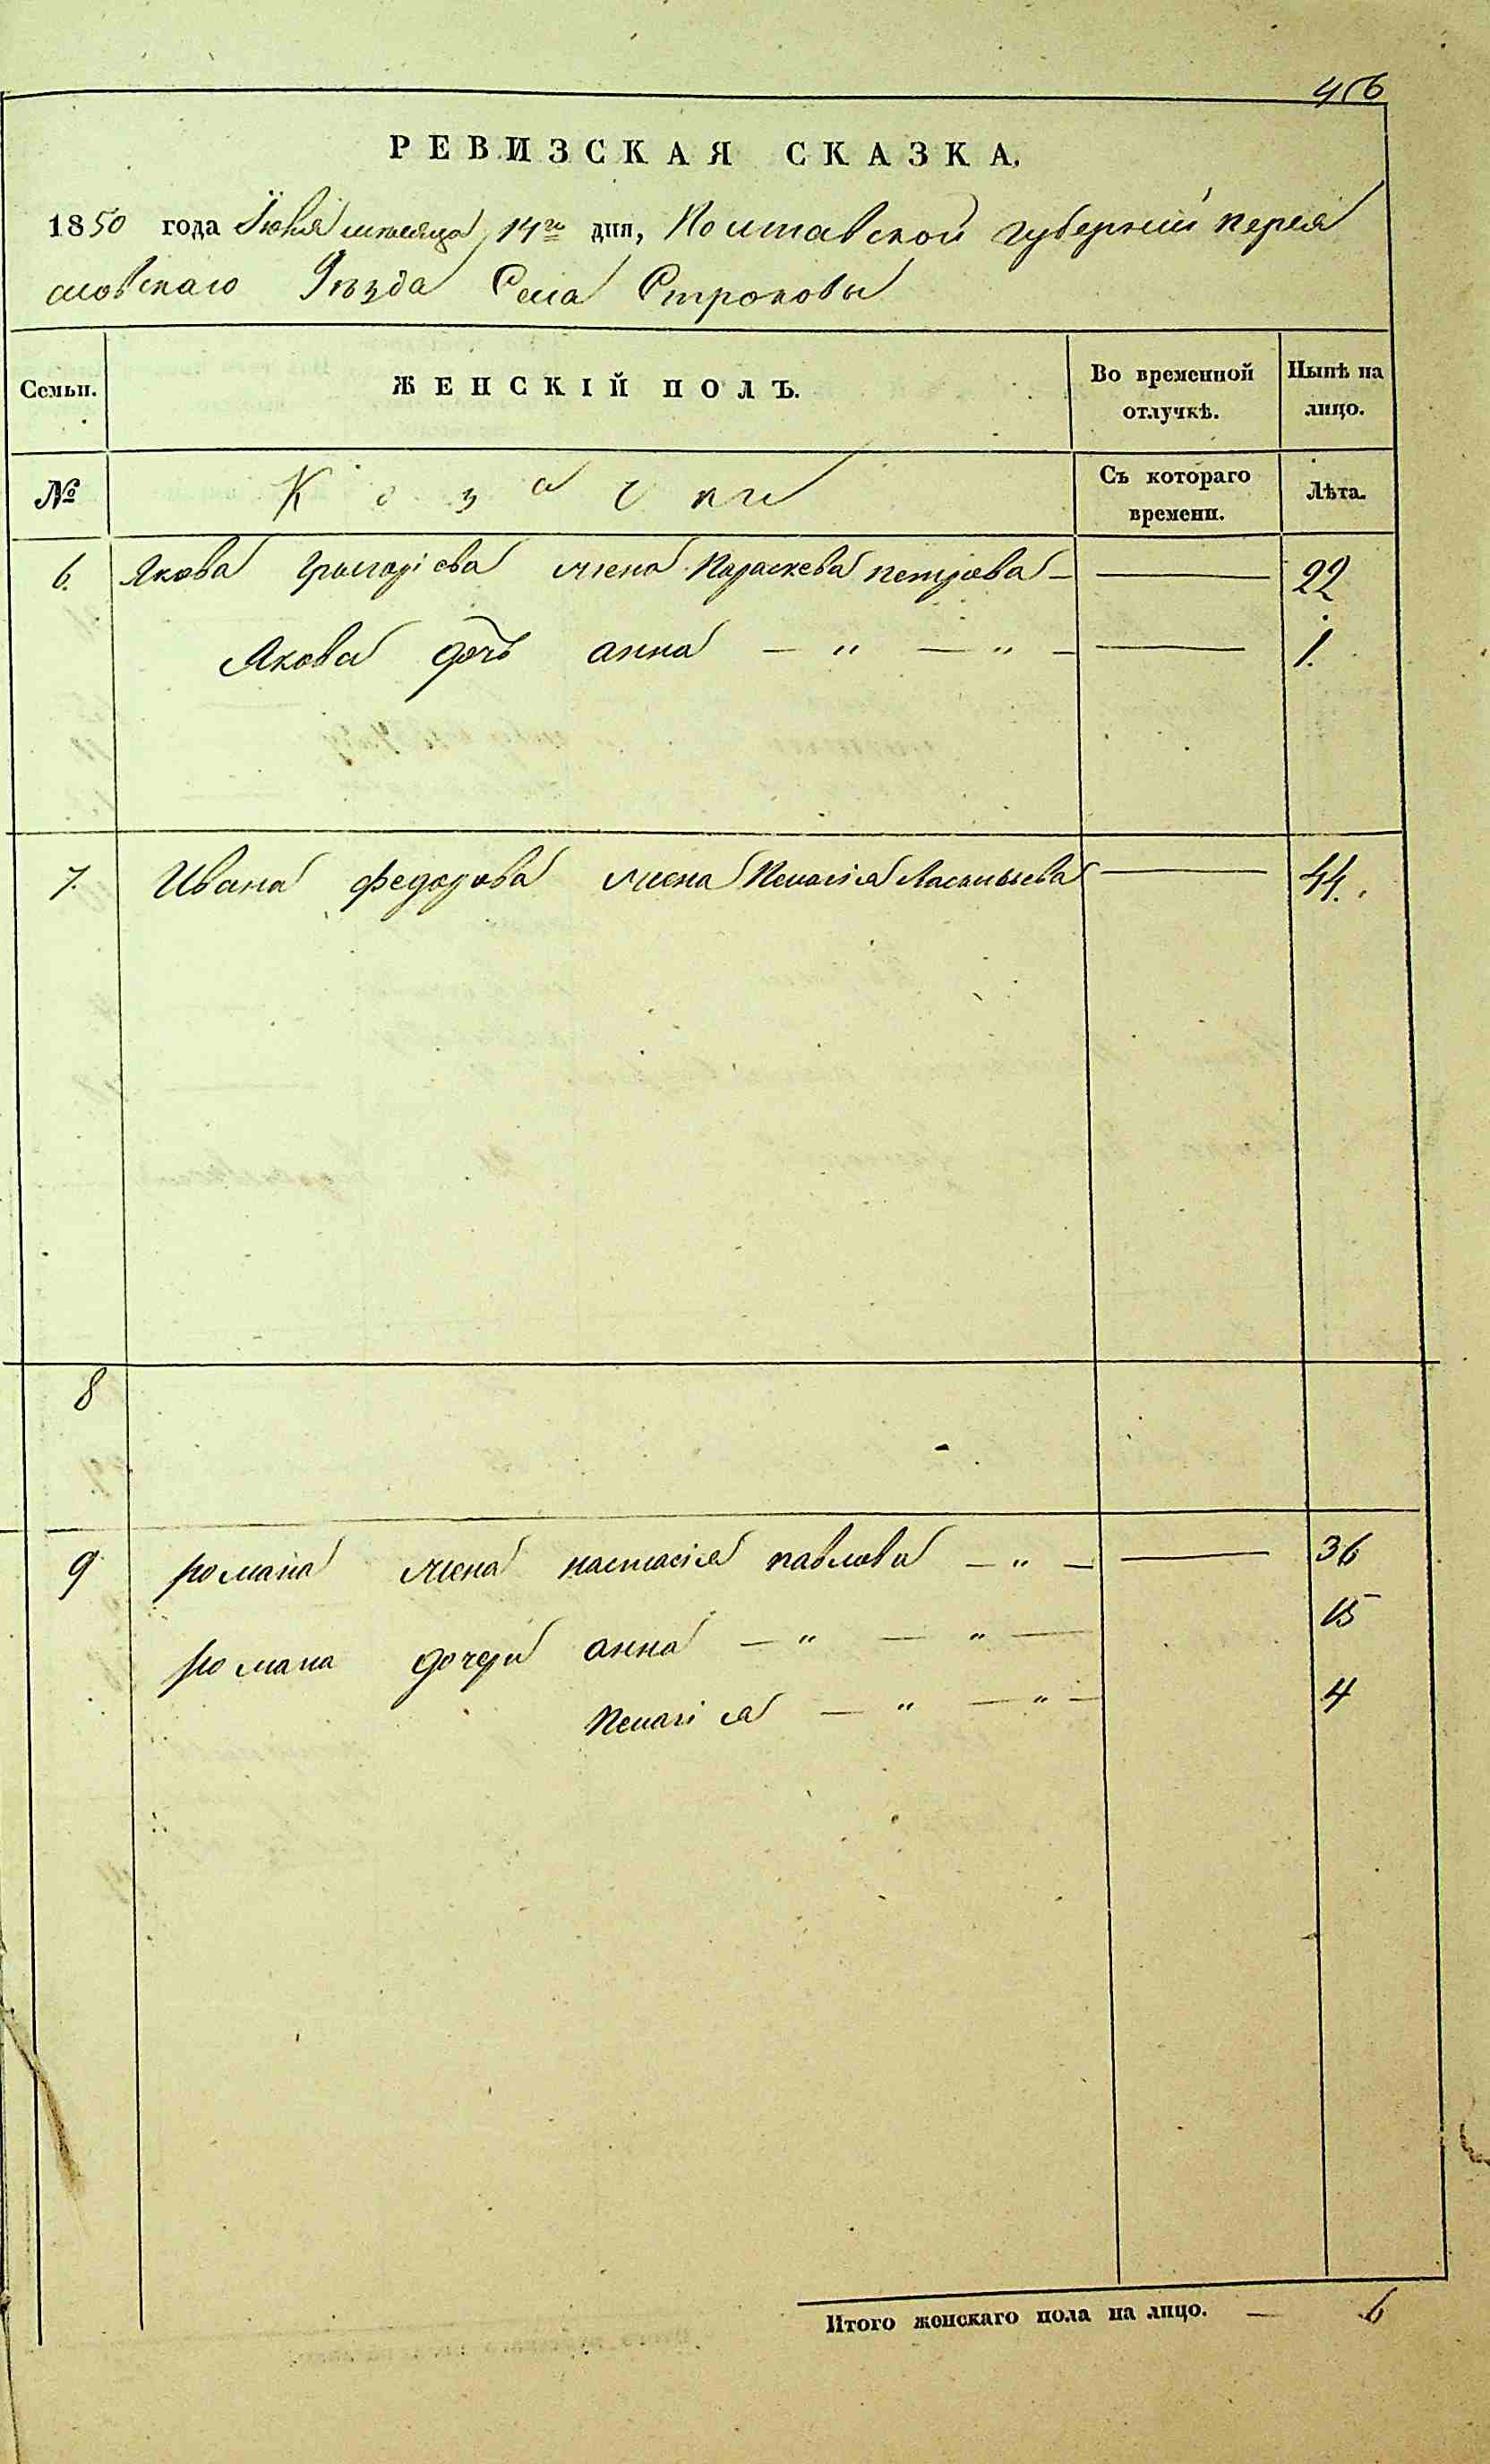 456
РЕВИЗСКАЯ СКАЗКА.
1850 года Іюня месяца 14го дня, Полтавской губерніи Перея
славскаго Уѣзда Села Строковы
Семьи. ЖЕНСКІЙ ПОЛЪ. Во временной отлучкѣ. Нынѣ на лицо.
№ Козачки Съ котораго времени. Лѣта.
6. Якова Григоріева жена Параскева петрова — — 22
Якова дочь анна — " — " — — 1.
7. Ивана федорова жена Пелагія — 44.
8
9 романа жена настасія павлова — " — — 36
романа дочери анна — " — " — 15
Пелагія — " — " — 4
Итого женскаго пола на лицо. — 6